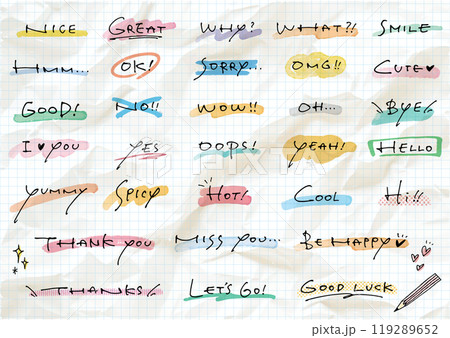 NICE GREAT WHY? WHAT?! SMILE
HMM... OK! SORRY... OMG!! CUTE♥
GOOD! NO!! WOW!! OH... \BYE/
I♥YOU YES OOPS! YEAH! HELLO
YUMMY SPICY HOT! COOL Hi!!
THANK YOU MISS YOU... BE HAPPY♥
\\THANKS// LET'S GO! GOOD LUCK
PIXTA
119289652